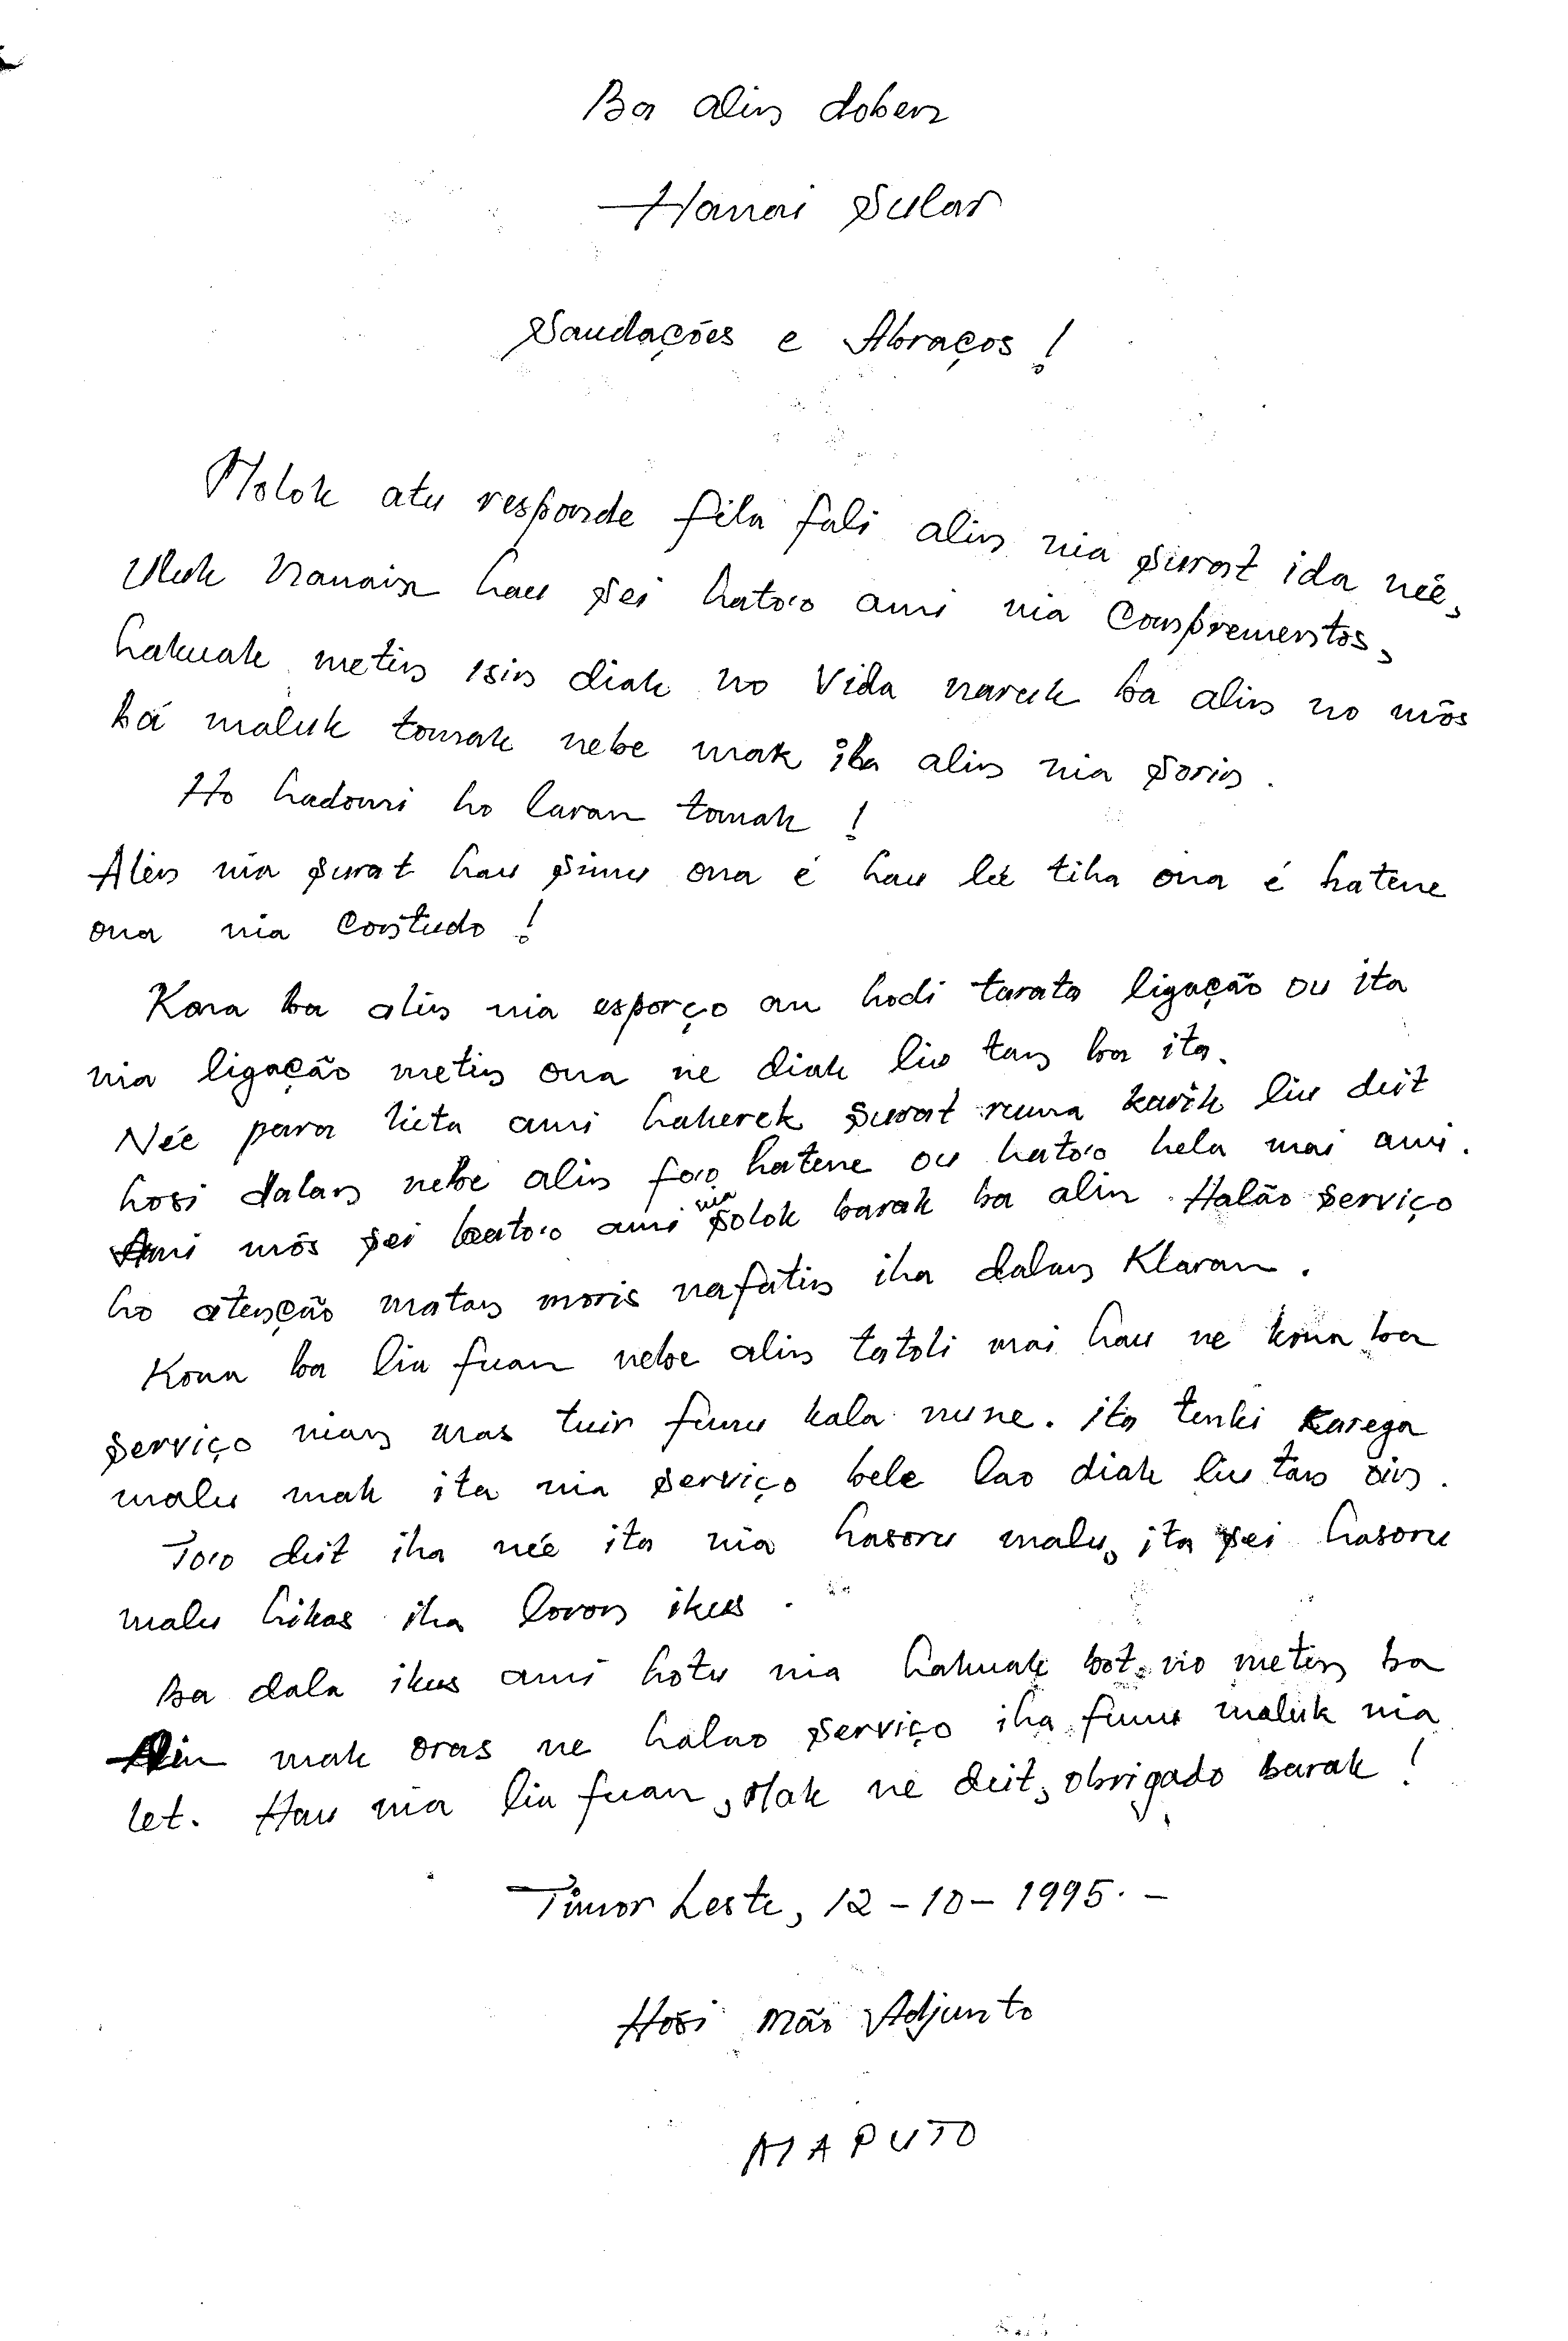 Ba alin doben
Hanai Sular
Saudações e Abraços!
Molok atu responde fila fali alin nia surat ida née,
Uluk nanain hau sei hato'o ami nia Comprementos,
hakuak metin isin diak no Vida naruk ba alin no mós
bá maluk tomak nebe mak iha alin nia sorin.
Ho hadomi ho laran tomak!
Alin nia surat hau simu ona é hau lée tiha ona é hatene
ona nia Contudo!
Kona ba alin nia esporço an hodi tarata ligação ou ita
nia ligação metin ona ne diak liu tan ba ita.
Née para lieta ami hakerek surat ruma karik liu deit
hosi dalan nebe alin fo'o hatene ou hato'o hela mai ami.
Ami mós sei hato'o ami nia solok barak ba alin. Halão serviço
ho atenção matan moris nafatin iha dalan Klaran.
Kona ba lia fuan nebe alin tatoli mai hau ne kona ba
serviço nian mas tuir funu kala nune. ita tenki Karega
malu mak ita nia serviço bele lao diak liu tan óin.
To'o deit iha née ita nia hasoru malu, ita sei hasoru
malu hikas iha loron ikus.
Ba dala ikus ami hotu nia hakuak bot. no metin ba
Alin mak oras ne halao serviço iha funu maluk nia
let. Hau nia lia fuan, Mak ne deit, obrigado barak!
Timor Leste, 12-10-1995.-
Hosi Mão Adjunto
MAPUTO